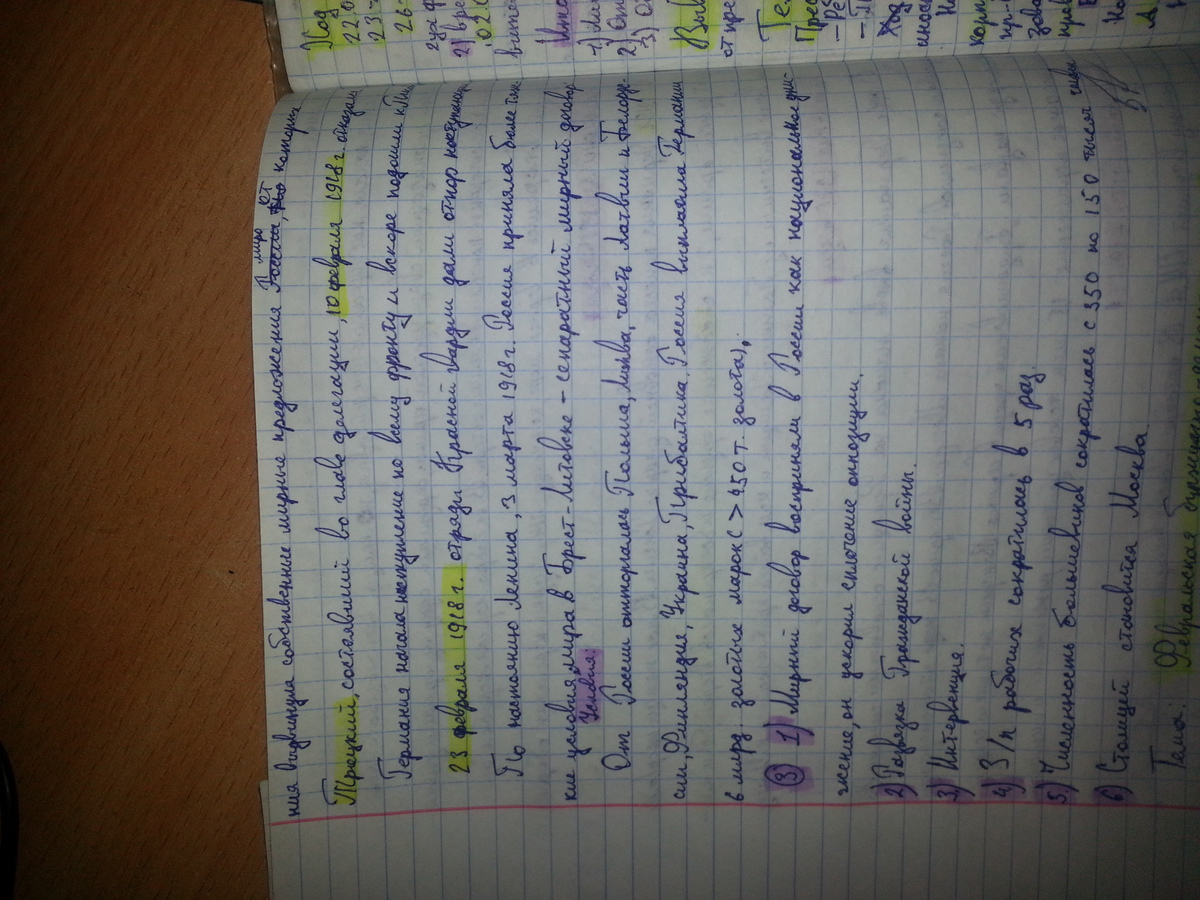 ния выдвинула собственные мирные предложения Россия, от которых
миро
Троцкий, состоявший во главе делегации, 10 февраля 1918 г. отказался
Германия начала наступление по всему фронту и вскоре подошли к
23 февраля 1918 г. отряды Красной гвардии дали отпор
По настоянию Ленина, 3 марта 1918 г. Россия приняла более тяж
кие условия мира в Брест-Литовске - сепаратный мирный договор
Условия:
От России отторглась Польша, Литва, часть Латвии и Белорус-
сии, Финляндия, Украина, Прибалтика. Россия выплатила Германии
млрд золотых марок (> 450 т. золота).
③ 1) Мирный договор восприняли в России как национальное уни-
жение, он ускорил сплочение оппозиции.
2) Развязка Гражданской войны.
3) Интервенция.
4) З/п рабочих сократилась в 5 раз
5) Численность большевиков сократилась с 350 по 150 тысяч
6) Столицей становится Москва
Тема: Февральская
Ход
22.0
23-
26-
2)
.02.0
1)
2)
3)
Выв
от пре
Те
Пре